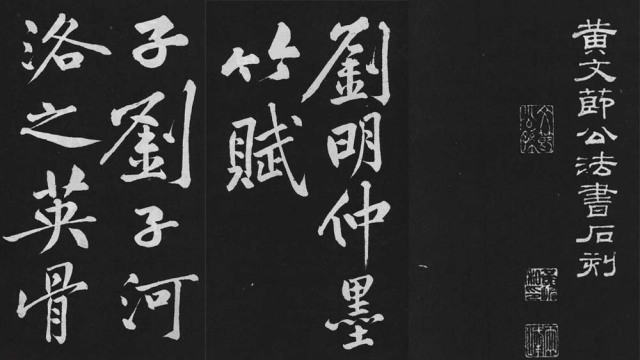 黃文節公法書石刻
劉明仲墨
竹賦
子劉子河
洛之英骨